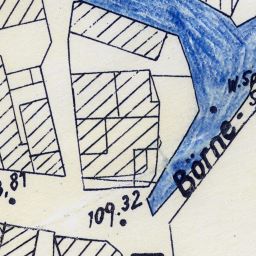 W.Sp
Börne-S
3,81
109.32